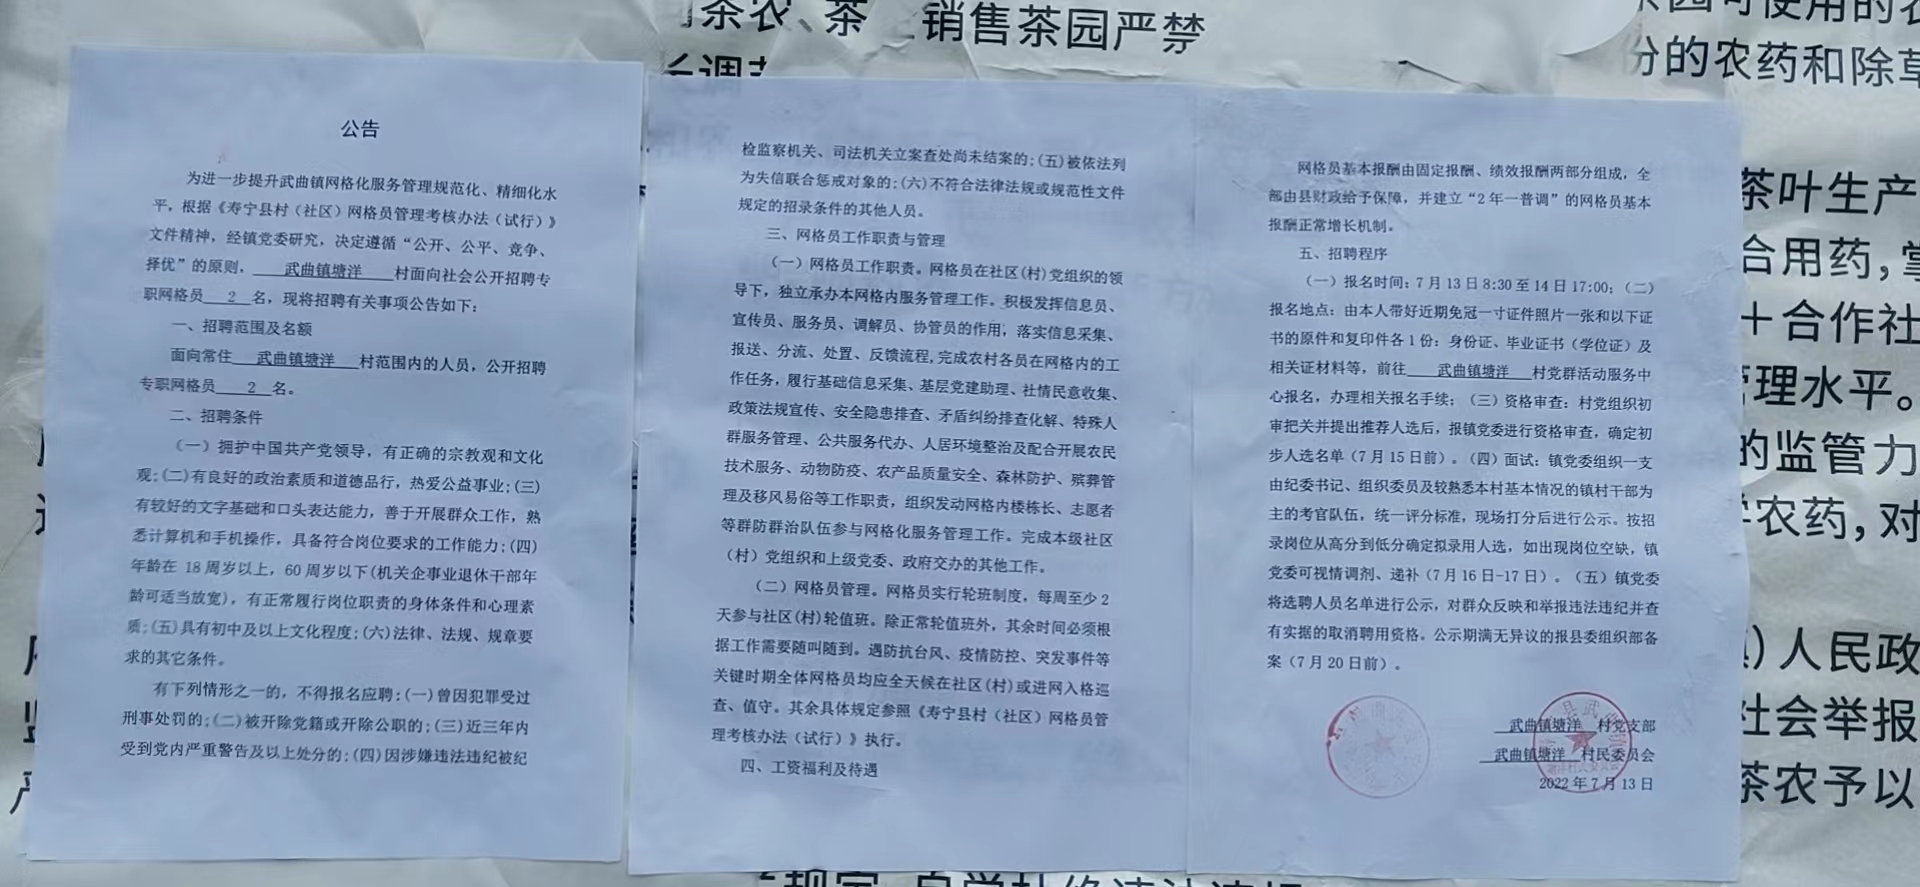 公告
为进一步提升武曲镇网格化服务管理规范化、精细化水
平，根据《寿宁县村（社区）网格员管理考核办法（试行）》
文件精神，经镇党委研究，决定遵循“公开、公平、竞争、
择优”的原则， 武曲镇塘洋 村面向社会公开招聘专
职网格员 2 名，现将招聘有关事项公告如下：
一、招聘范围及名额
面向常住 武曲镇塘洋 村范围内的人员，公开招聘
专职网格员 2 名。
二、招聘条件
（一）拥护中国共产党领导，有正确的宗教观和文化
观;(二)有良好的政治素质和道德品行，热爱公益事业;(三)
有较好的文字基础和口头表达能力，善于开展群众工作，熟
悉计算机和手机操作，具备符合岗位要求的工作能力;(四)
年龄在 18 周岁以上，60 周岁以下(机关企事业退休干部年
龄可适当放宽)，有正常履行岗位职责的身体条件和心理素
质;(五)具有初中及以上文化程度;(六)法律、法规、规章要
求的其它条件。
有下列情形之一的，不得报名应聘:(一)曾因犯罪受过
刑事处罚的;(二)被开除党籍或开除公职的;(三)近三年内
受到党内严重警告及以上处分的;(四)因涉嫌违法违纪被纪
检监察机关、司法机关立案查处尚未结案的;(五)被依法列
为失信联合惩戒对象的;(六)不符合法律法规或规范性文件
规定的招录条件的其他人员。
三、网格员工作职责与管理
（一）网格员工作职责。网格员在社区(村)党组织的领
导下，独立承办本网格内服务管理工作。积极发挥信息员、
宣传员、服务员、调解员、协管员的作用，落实信息采集、
报送、分流、处置、反馈流程,完成农村各员在网格内的工
作任务，履行基础信息采集、基层党建助理、社情民意收集、
政策法规宣传、安全隐患排查、矛盾纠纷排查化解、特殊人
群服务管理、公共服务代办、人居环境整治及配合开展农民
技术服务、动物防疫、农产品质量安全、森林防护、殡葬管
理及移风易俗等工作职责，组织发动网格内楼栋长、志愿者
等群防群治队伍参与网格化服务管理工作。完成本级社区
（村）党组织和上级党委、政府交办的其他工作。
（二）网格员管理。网格员实行轮班制度，每周至少 2
天参与社区(村)轮值班。除正常轮值班外，其余时间必须根
据工作需要随叫随到。遇防抗台风、疫情防控、突发事件等
关键时期全体网格员均应全天候在社区(村)或进网入格巡
查、值守。其余具体规定参照《寿宁县村（社区）网格员管
理考核办法（试行）》执行。
四、工资福利及待遇
网格员基本报酬由固定报酬、绩效报酬两部分组成，全
部由县财政给予保障，并建立“2 年一普调”的网格员基本
报酬正常增长机制。
五、招聘程序
（一）报名时间：7 月 13 日 8:30 至 14 日 17:00；（二）
报名地点：由本人带好近期免冠一寸证件照片一张和以下证
书的原件和复印件各 1 份：身份证、毕业证书（学位证）及
相关证材料等，前往 武曲镇塘洋 村党群活动服务中
心报名，办理相关报名手续；（三）资格审查：村党组织初
审把关并提出推荐人选后，报镇党委进行资格审查，确定初
步人选名单（7 月 15 日前）。（四）面试：镇党委组织一支
由纪委书记、组织委员及较熟悉本村基本情况的镇村干部为
主的考官队伍，统一评分标准，现场打分后进行公示。按招
录岗位从高分到低分确定拟录用人选，如出现岗位空缺，镇
党委可视情调剂、递补（7 月 16 日-17 日）。（五）镇党委
将选聘人员名单进行公示，对群众反映和举报违法违纪并查
有实据的取消聘用资格。公示期满无异议的报县委组织部备
案（7 月 20 日前）。
武曲镇塘洋 村党支部
武曲镇塘洋 村民委员会
2022 年 7 月 13 日
茶农、茶
销售茶园严禁
园可使用的农
的农药和除草
茶叶生产
合用药，掌
＋合作社
管理水平。
的监管力
农药，对
）人民政
社会举报
茶农予以